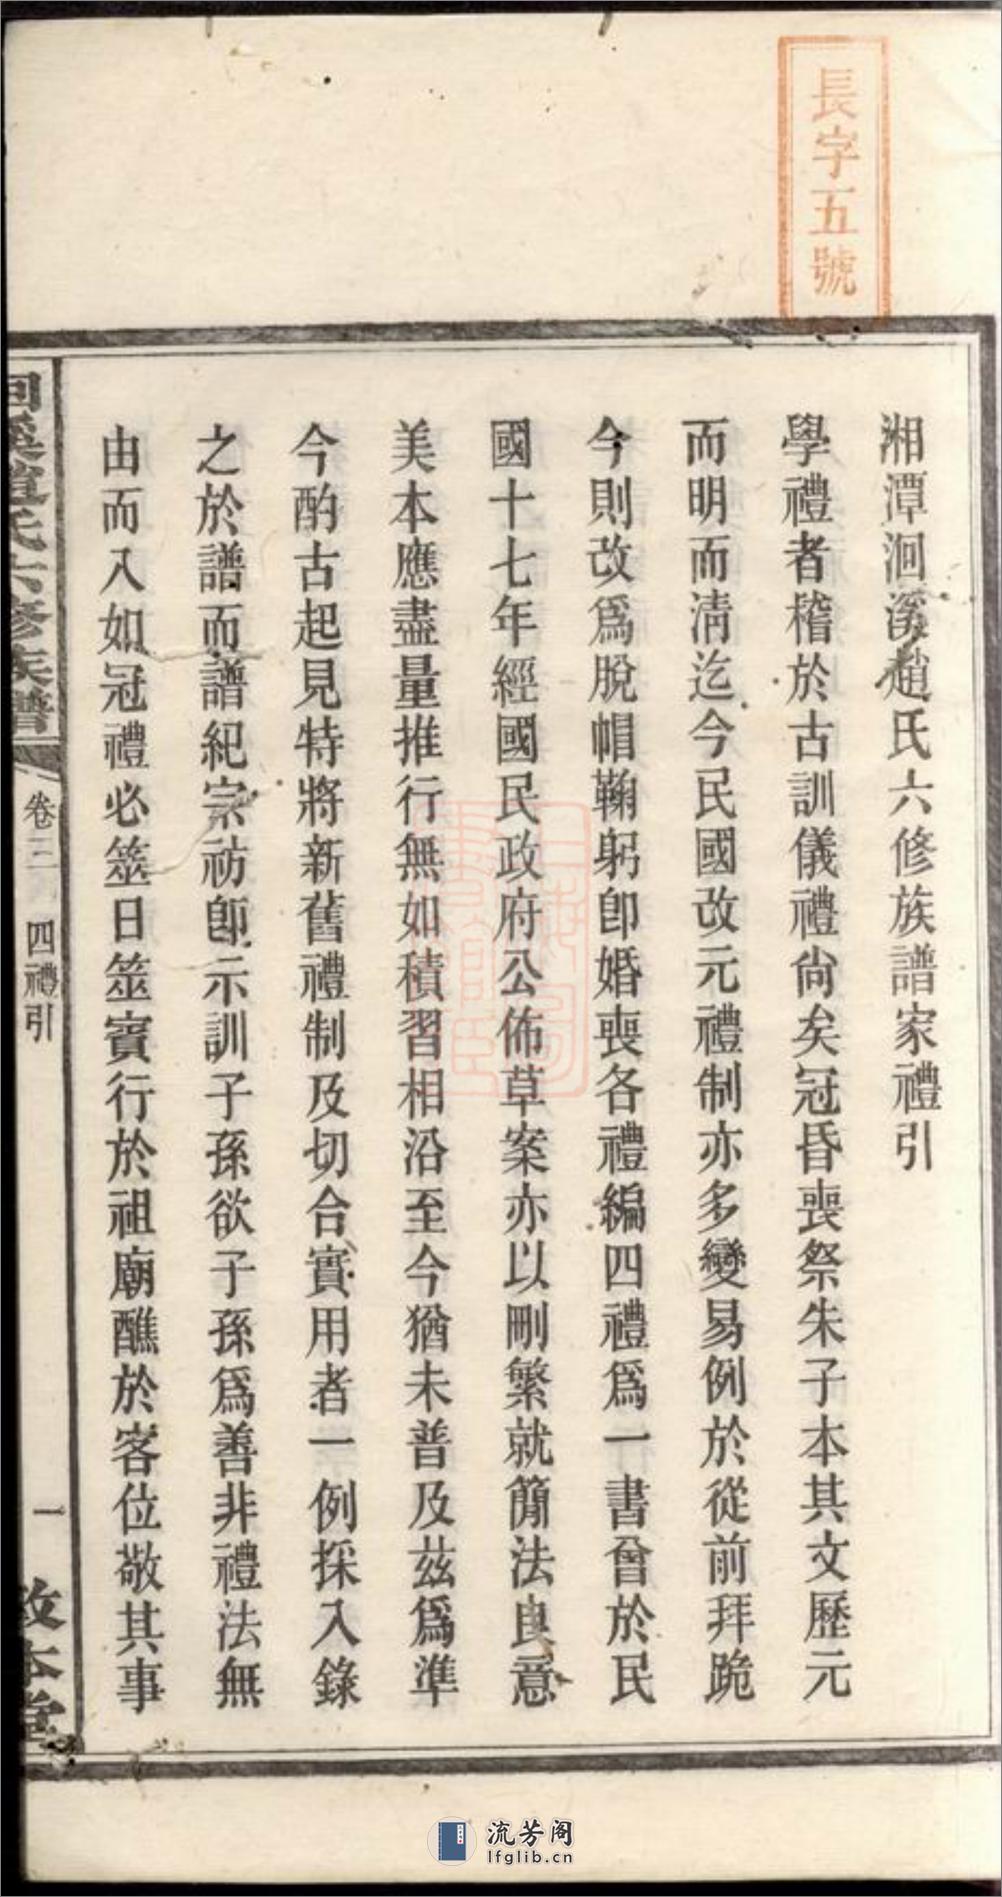 長字五號
湘潭洄溪趙氏六修族譜家禮引
學禮者稽於古訓儀禮尙矣冠昏喪祭朱子本其文歷元
而明而淸迄今民國改元禮制亦多變易例於從前拜跪
今則改爲脫帽鞠躬卽婚喪各禮編四禮爲一書曾於民
國十七年經國民政府公佈草案亦以刪繁就簡法良意
美本應盡量推行無如積習相沿至今猶未普及茲爲準
今酌古起見特將新舊禮制及切合實用者一例採入錄
之於譜而譜紀宗祊卽示訓子孫欲子孫爲善非禮法無
由而入如冠禮必筮日筮賓行於祖廟醮於客位敬其事
洄溪趙氏六修族譜
卷三
四禮引
一
敦本堂
流芳阁
lfglib.cn